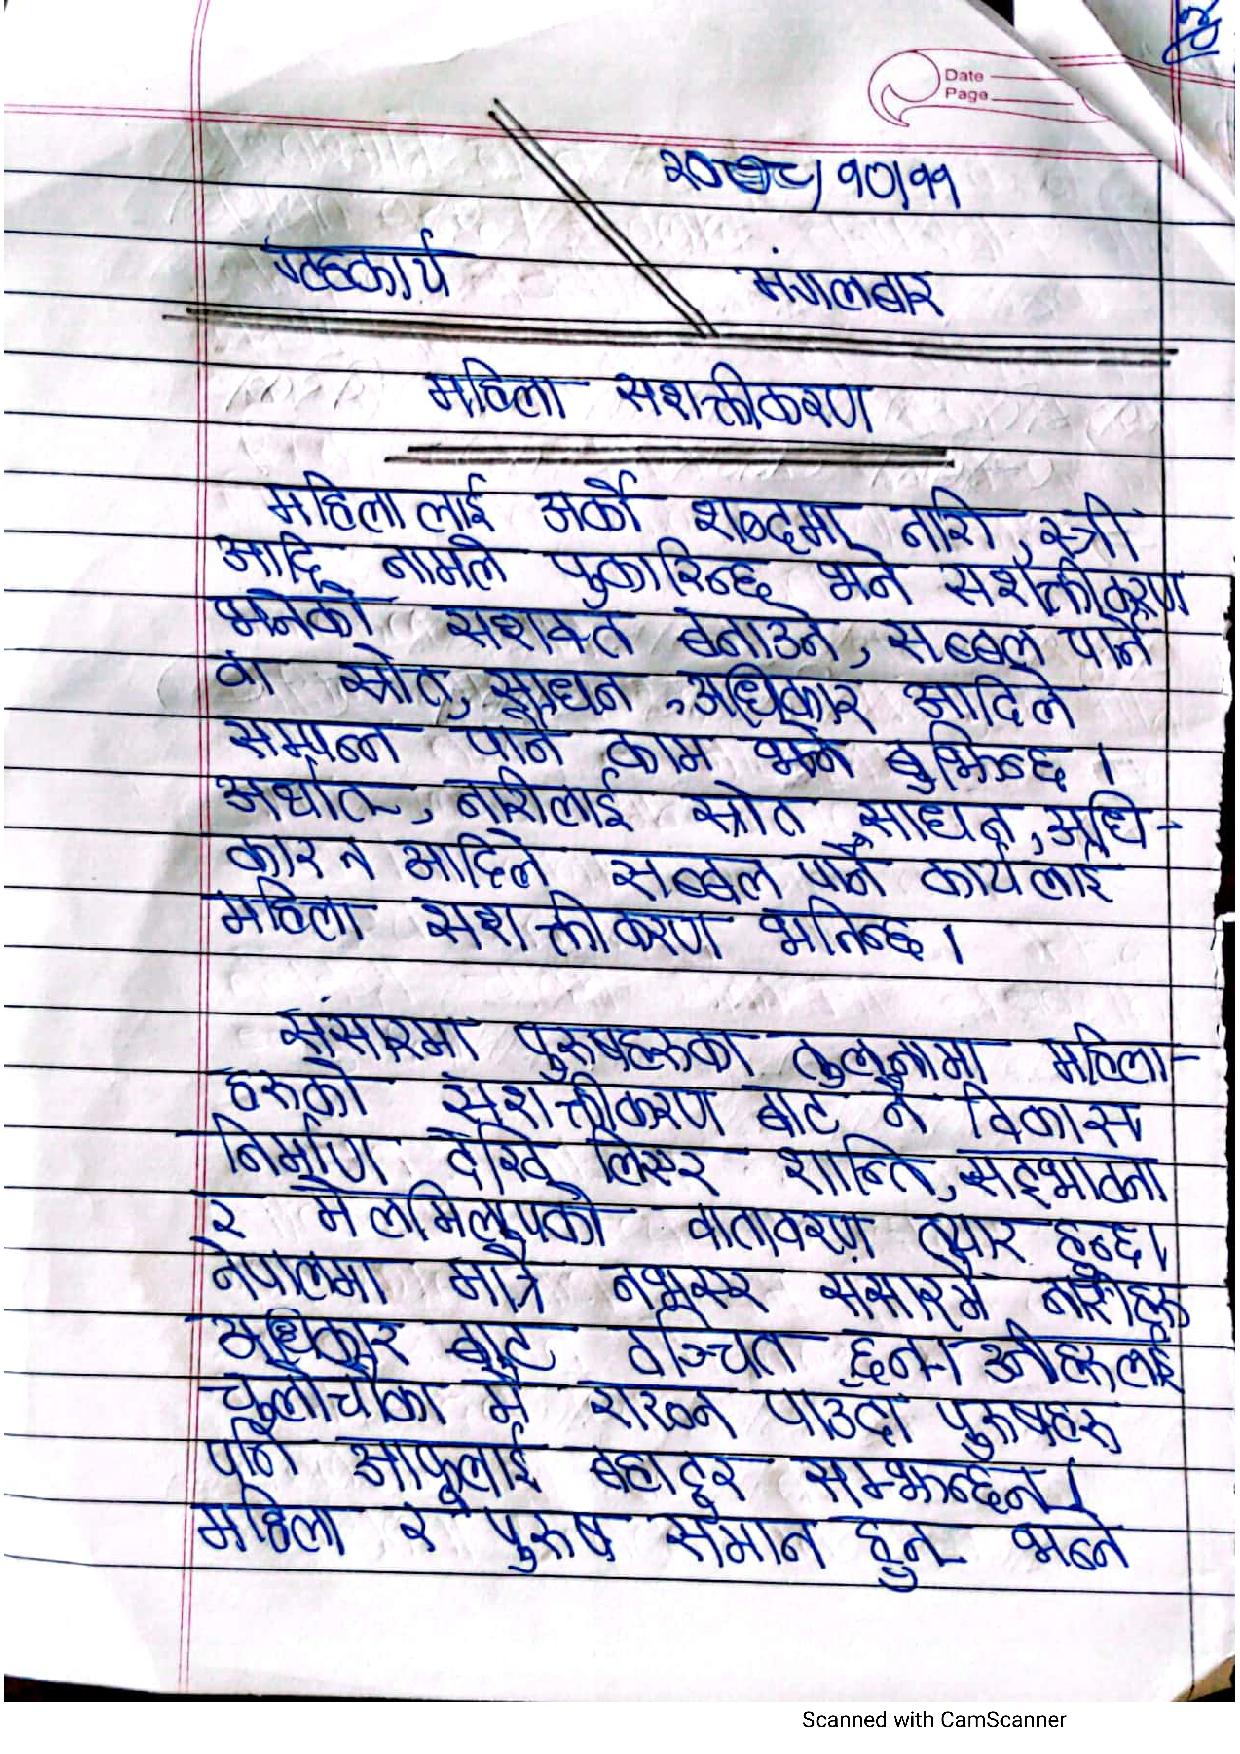 Date
Page
२०७८/१०/११
गृहकार्य मंगलबार
महिला सशक्तीकरण
महिलालाई अर्को शब्दमा नारी, स्त्री
आदि नामले पुकारिन्छ भने सशक्तीकरण
भनेको सशक्त बनाउने, सब्बल पार्ने
वा स्रोत, साधन, अधिकार आदिले
सम्पन्न पार्ने काम भन्ने बुझिन्छ ।
अर्थात्, नारीलाई स्रोत, साधन, अधि-
कार न आदिले सब्बल पार्ने कार्यलाई
महिला सशक्तीकरण भनिन्छ ।
संसारमा पुरुषहरुका तुलनामा महिला-
हरुको सशक्तीकरण बाट नै विकास
निर्माण देखि लिएर शान्ति, सद्भावना
र मेलमिलापको वातावरण तयार हुन्छ।
नेपालमा मात्रै नभएर संसारमै नारीहरु
अधिकार बाट वञ्चित छन्। उनीहरुलाई
चुलोचौका मै राख्न पाउदा पुरुषहरु
पनि आफूलाई बहादुर सम्झन्छन्।
महिला र पुरुष समान हुन् भन्ने
Scanned with CamScanner